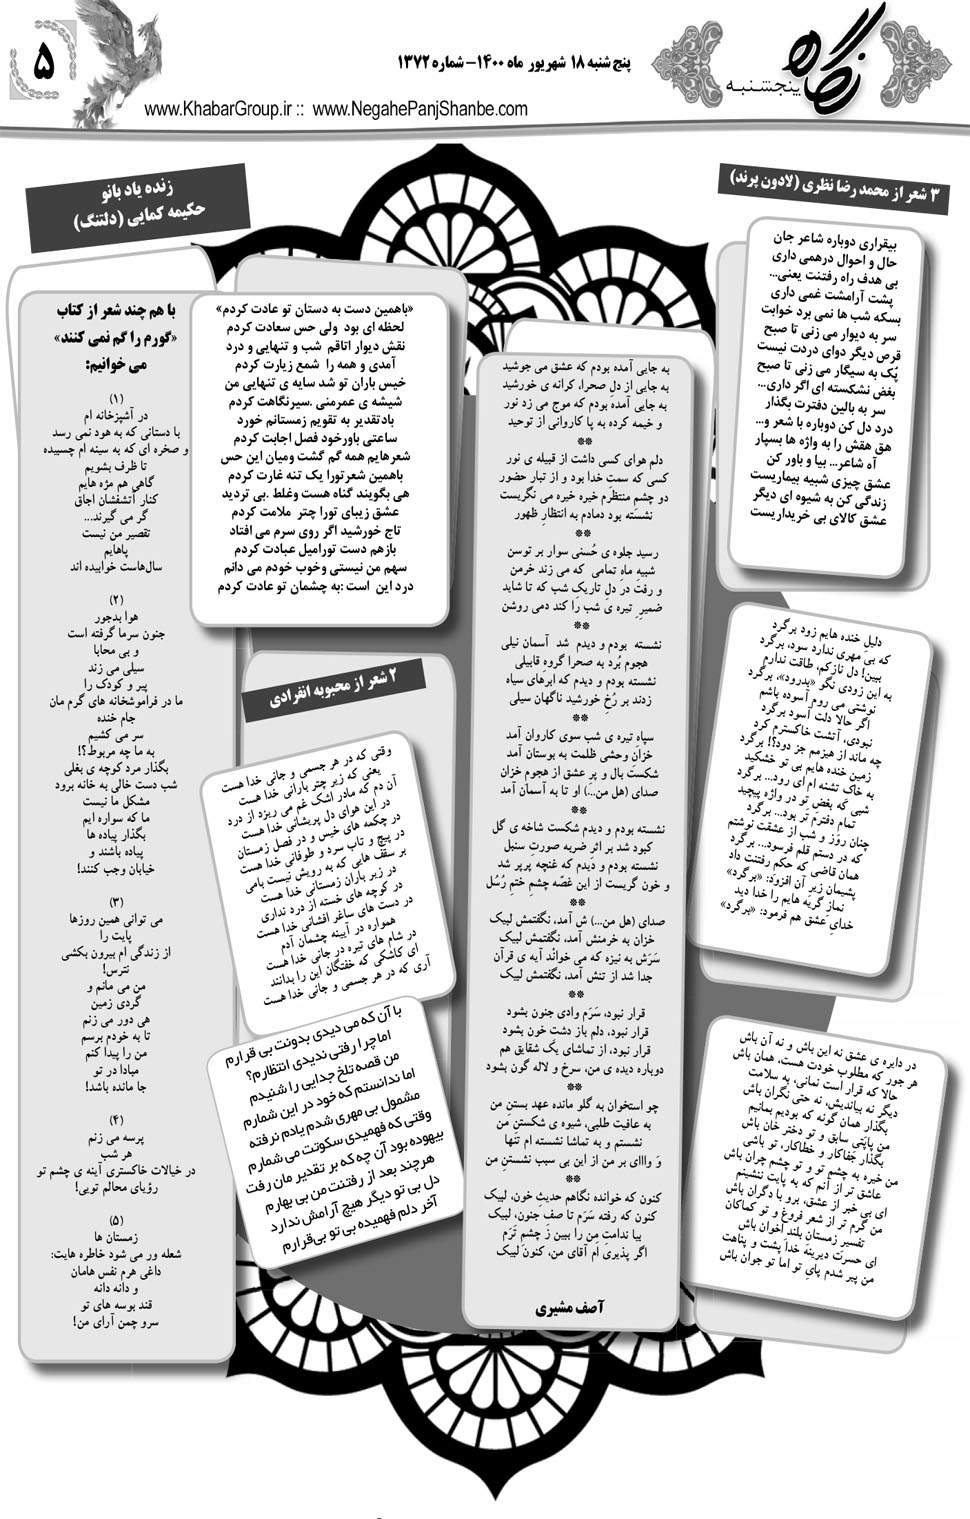 نگاه
پنجشنبه
پنج شنبه ۱۸ شهریور ماه ۱۴۰۰- شماره ۱۳۷۲
۵
www.KhabarGroup.ir :: www.NegahePanjShanbe.com
۳ شعر از محمد رضا نظری (لادون پرند)
بیقراری دوباره شاعر جان
حال و احوال درهمی داری
بی هدف راه رفتنت یعنی...
پشت آرامشت غمی داری
بسکه شب ها نمی برد خوابت
سر به دیوار می زنی تا صبح
قرص دیگر دوای دردت نیست
پُک به سیگار می زنی تا صبح
بغض نشکسته ای اگر داری...
سر به بالین دفترت بگذار
درد دل کن دوباره با شعر و...
هق هقش را به واژه ها بسپار
آه شاعر... بیا و باور کن
عشق چیزی شبیه بیماریست
زندگی کن به شیوه ای دیگر
عشق کالای بی خریداریست
دلیلِ خنده هایم زود برگرد
که بی مهری ندارد سود، برگرد
ببین! دل نازکم، طاقت ندارم
به این زودی نگو «بدرود»، برگرد
نوشتی می روم آسوده باشم
اگر حالا دلت آسود برگرد
نبودی، آتشت خاکسترم کرد
چه ماند از هیزمم جز دود؟! برگرد
زمین خنده هایم بی تو خشکید
به خاک تشنه ام ای رود... برگرد
شبی که بغضِ تو در واژه پیچید
تمام دفترم تر بود... برگرد
چنان روز و شب از عشقت نوشتم
که در دستم قلم فرسود... برگرد
همان قاضی که حکم رفتنت داد
پشیمان زیر آن افزود: «برگرد»
نماز گریه هایم را خدا دید
خدایِ عشق هم فرمود: «برگرد»
در دایره ی عشق نه این باش و نه آن باش
هر جور که مطلوب خودت هست، همان باش
حالا که قرار است نمانی، به سلامت
دیگر نه بیاندیش، نه حتی نگران باش
بگذار همان گونه که بودیم بمانیم
من پاپَتی سابق و تو دختر خان باش
بگذار جفاکار و خطاکار، تو باشی
من خیره به چشم تو و تو چشم چران باش
عاشق تر از آنم که به پایت ننشینم
ای بی خبر از عشق، برو با دگران باش
من گرم تر از شعر فروغ و تو کماکان
تفسیر زمستان بلند اخوان باش
ای حسرت دیرینه خدا پشت و پناهت
من پیر شدم پایِ تو اما تو جوان باش
به جایی آمده بودم که عشق می جوشید
به جایی از دلِ صحرا، کرانه ی خورشید
به جایی آمده بودم که موج می زد نور
و خیمه کرده به پا کاروانی از توحید
**
دلم هوای کسی داشت از قبیله ی نور
کسی که سمت خدا بود و از تبار حضور
دو چشمِ منتظرم خیره خیره می نگریست
نشسته بود دمادم به انتظارِ ظهور
**
رسید جلوه ی حُسنی سوار بر توسن
شبیهِ ماهِ تمامی که می زند خرمن
و رفت در دلِ تاریکِ شب که تا شاید
ضمیرِ تیره ی شب را کند دمی روشن
**
نشسته بودم و دیدم شد آسمان نیلی
هجوم بُرد به صحرا گروهِ قابیلی
نشسته بودم و دیدم که ابرهای سیاه
زدند بر رُخِ خورشید ناگهان سیلی
**
سپاهِ تیره ی شب سوی کاروان آمد
خزان وحشیِ ظلمت به بوستان آمد
شکست بال و پر عشق از هجومِ خزان
صدای (هل من...) او تا به آسمان آمد
**
نشسته بودم و دیدم شکست شاخه ی گل
کبود شد بر اثر ضربه صورتِ سنبل
نشسته بودم و دیدم که غنچه پرپر شد
و خون گریست از این غصّه چشمِ ختمِ رُسُل
**
صدای (هل من...) ش آمد، نگفتمش لبیک
خزان به خرمنش آمد، نگفتمش لبیک
سَرَش به نیزه که می خواند آیه ی قرآن
جدا شد از تنش آمد، نگفتمش لبیک
**
قرار نبود، سَرَم وادی جنون بشود
قرار نبود، دلم بازِ دشت خون بشود
قرار نبود، از تماشای یک شقایق هم
دوباره دیده ی من، سرخ و لاله گون بشود
**
چو استخوان به گلو مانده عهد بستنِ من
به عافیت طلبی، شیوه ی شکستنِ من
نشستم و به تماشا نشسته ام تنها
وَ وااای بر من از این بی سبب نشستنِ من
**
کنون که خوانده نگاهم حدیثِ خون، لبیک
کنون که رفته سَرَم تا صفِ جنون، لبیک
بیا ندامتِ من را ببین ز چشمِ تَرَم
اگر پذیری ام آقای من، کنون لبیک
آصف مشیری
زنده یاد بانو
حکیمه کمایی (دلتنگ)
«باهمین دست به دستان تو عادت کردم»
لحظه ای بود ولی حس سعادت کردم
نقش دیوار اتاقم شب و تنهایی و درد
آمدی و همه را شمع زیارت کردم
خیس باران تو شد سایه ی تنهایی من
شیشه ی عمرمنی .سیرنگاهت کردم
بادتقدیر به تقویم زمستانم خورد
ساعتی باورخود فصل اجابت کردم
شعرهایم همه گم گشت ومیان این حس
باهمین شعرتورا یک تنه غارت کردم
هی بگویند گناه هست وغلط .بی تردید
عشق زیبای تورا چتر ملامت کردم
تاج خورشید اگر روی سرم می افتاد
بازهم دست تورامیل عبادت کردم
سهم من نیستی وخوب خودم می دانم
درد این است :به چشمان تو عادت کردم
با هم چند شعر از کتاب
«گورم را گم نمی کنند»
می خوانیم:
(۱)
در آشپزخانه ام
با دستانی که به هود نمی رسد
و صخره ای که به سینه ام چسبیده
تا ظرف بشویم
گاهی هم مژه هایم
کنار آتشفشان اجاق
گر می گیرند...
تقصیر من نیست
پاهایم
سال‌هاست خوابیده اند
(۲)
هوا بدجور
جنون سرما گرفته است
و بی محابا
سیلی می زند
پیر و کودک را
ما در فراموشخانه های گرم مان
جام خنده
سر می کشیم
به ما چه مربوط؟!
بگذار مرد کوچه ی بغلی
شب دست خالی به خانه برود
مشکل ما نیست
ما که سواره ایم
بگذار پیاده ها
پیاده باشند و
خیابان وجب کنند!
(۳)
می توانی همین روزها
پایت را
از زندگی ام بیرون بکشی
نترس!
من می مانم و
گردی زمین
هی دور می زنم
تا به خودم برسم
من را پیدا کنم
مبادا در تو
جا مانده باشد!
(۴)
پرسه می زنم
هر شب
در خیالات خاکستری آینه ی چشم تو
رؤیای محالم تویی!
(۵)
زمستان ها
شعله ور می شود خاطره هایت:
داغی هرم نفس هامان
و دانه دانه
قند بوسه های تو
سرو چمن آرای من!
۲ شعر از محبوبه انفرادی
وقتی که در هر جسمی و جانی خدا هست
یعنی که زیر چتر بارانی خدا هست
آن دم که مادر اشک غم می ریزد از درد
در این هوای دل پریشانی خدا هست
در چکمه های خیس و در فصل زمستان
در پیچ و تاب سرد و طوفانی خدا هست
بر سقف هایی که به رویش نیست بامی
در زیر باران زمستانی خدا هست
در کوچه های خسته از درد نداری
در دست های ساغر افشانی خدا هست
همواره در آیینه چشمان آدم
در شام های تیره در جانی خدا هست
ای کاشکی که خفتگان این را بدانند
آری که در هر جسمی و جانی خدا هست
با آن که می دیدی بدونت بی قرارم
اماچرا رفتی ندیدی انتظارم؟
من قصه تلخ جدایی را شنیدم
اما ندانستم که خود در این شمارم
مشمول بی مهری شدم یادم نرفته
وقتی که فهمیدی سکوتت می شمارم
بیهوده بود آن چه که بر تقدیر مان رفت
هرچند بعد از رفتنت من بی بهارم
دل بی تو دیگر هیچ آرامش ندارد
آخر دلم فهمیده بی تو بی‌قرارم